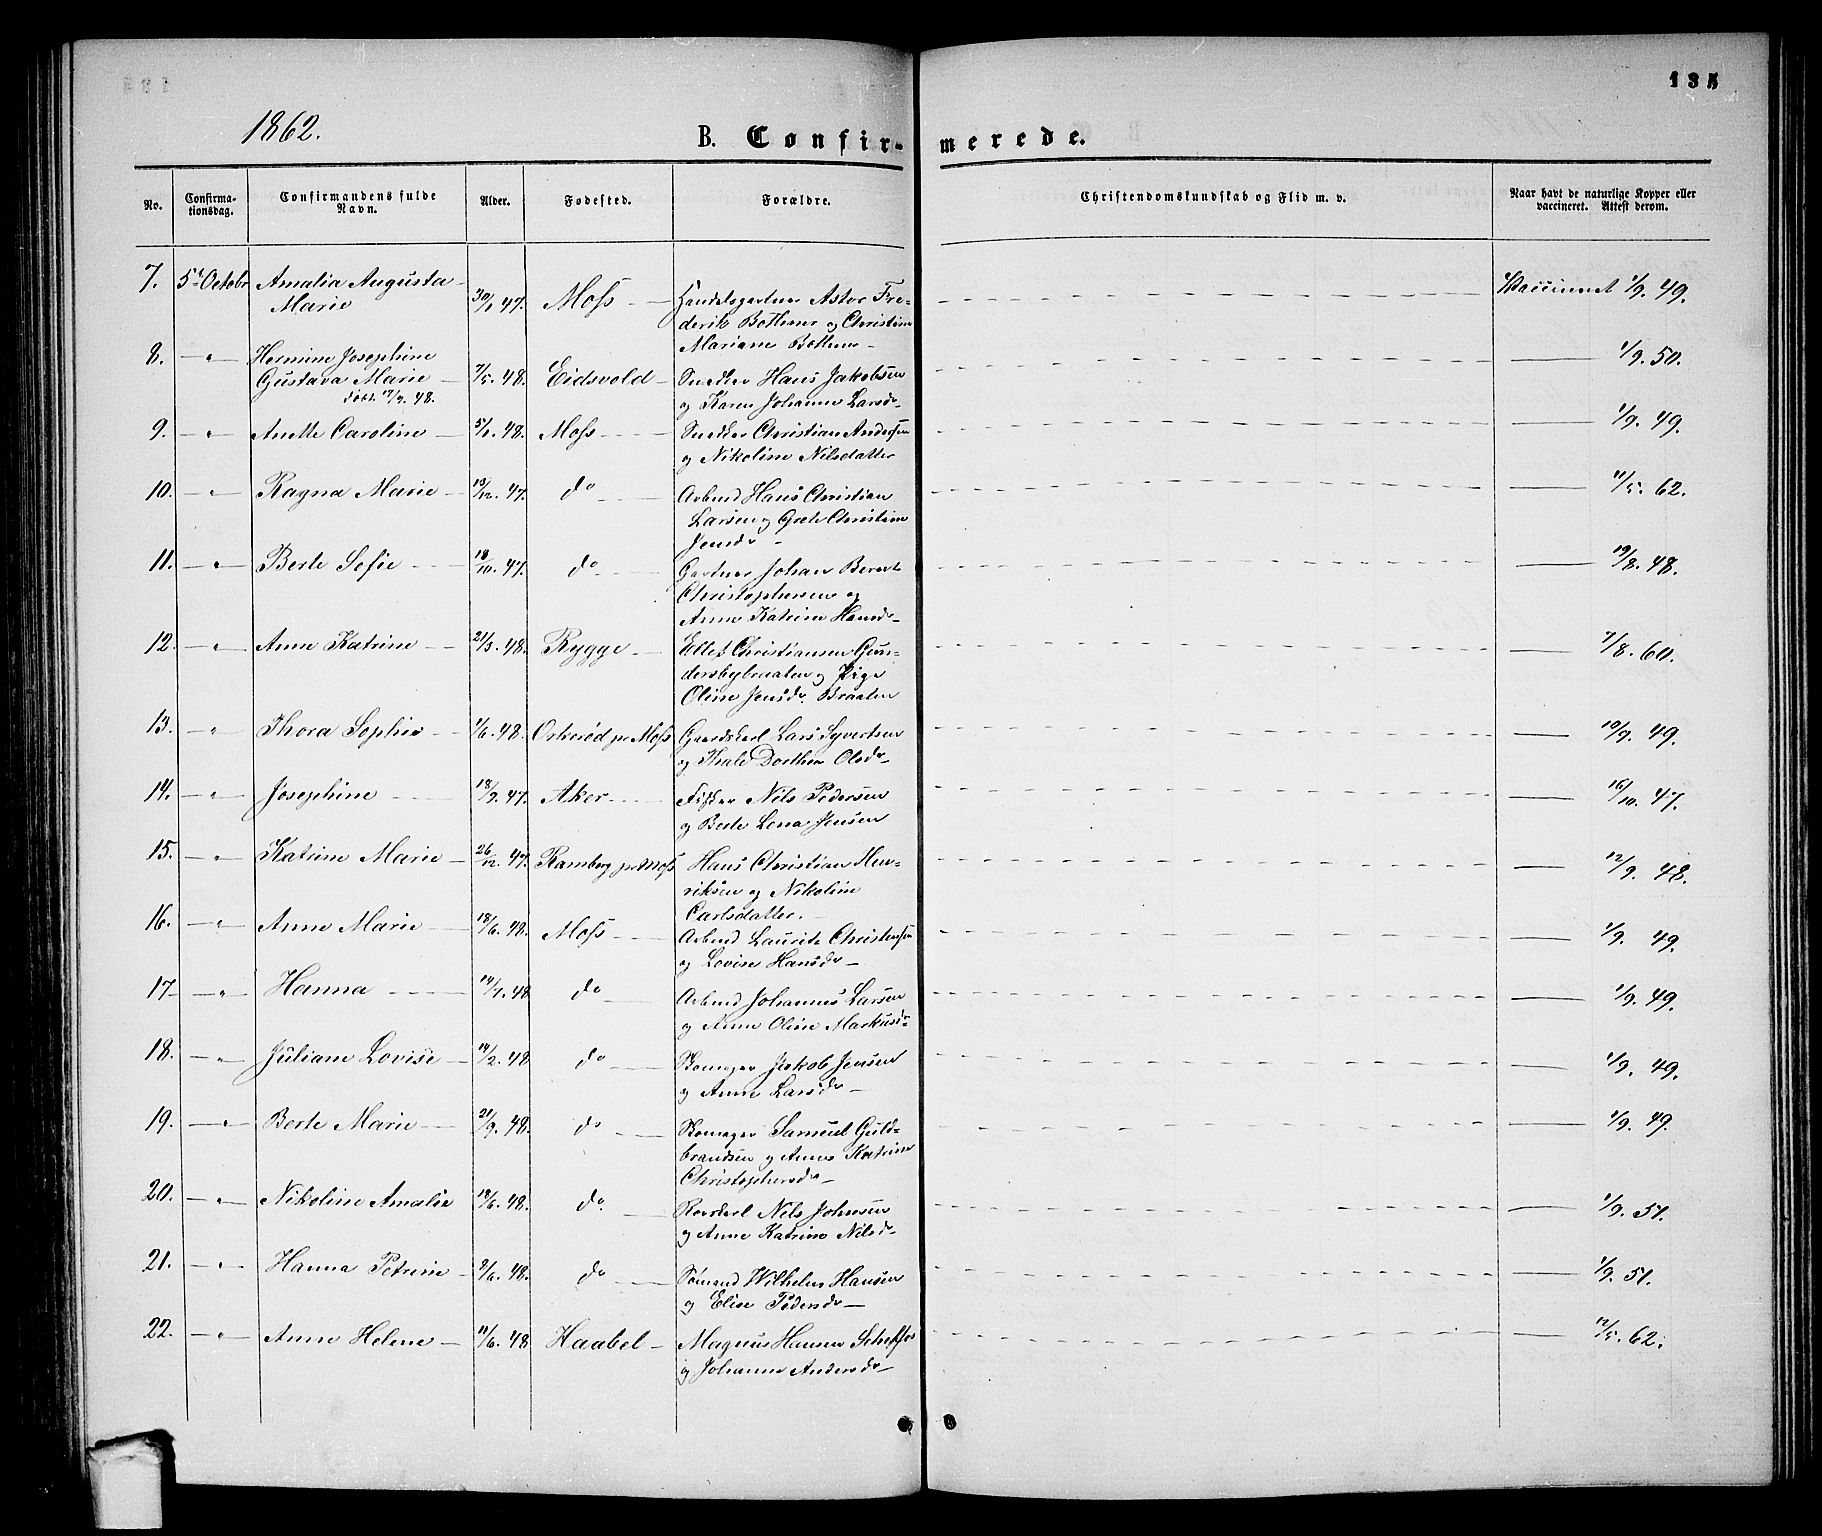 135
1862.
B. Confir- merede.
No. Confirma- tionsdag. Confirmandens fulde Navn. Alder. Fødested. Forældre. Christendomskundskab og Flid m. v. Naar havt de naturlige Kopper eller vaccineret. Attest derom.
7. 5t Octobr Amalia Augusta Marie 30/1 47. Moss Handelsgartner Astor Fre-
derik Bothner og Christine
Mariane Bothner Vaccineret 1/9. 49.
8. " Hermine Josephine
Gustava Marie
døbt. 17/9. 48. 7/5. 48. Eidsvold Snedker Hans Jakobsen
og Karen Johanne Larsdr 1/9. 50.
9. " Anette Caroline 5/1. 48. Moss Snedker Christian Andersen
og Nikoline Nilsdatter 1/9. 49.
10. " Ragna Marie 13/12. 47. do Arbmd Hans Christian
Larsen og Grete Christine
Jensdr 11/5. 62.
11. " Berte Sofie 18/10. 47. do Gartner Johan Berent
Christophersen og
Anne Katrine Hansdr 19/8. 48.
12. " Anne Katrine 21/3. 48. Rygge Ellef Christiansen Gun-
dersbybraaten og Pige
Oline Jensdr. Braaten 7/8. 60.
13. " Thora Sophie 1/6. 48. Orkerød pr Moss Gaardskarl Lars Syvertsen
og Thale Dorthea Olsdr 10/9. 49.
14. " Josephine 18/9. 47. Aker Fisker Nils Pedersen
og Berte Lena Jensen 16/10. 47.
15. " Katrine Marie 26/12. 47. Ramberg pr Moss Hans Christian Hen-
riksen og Nikoline
Carlsdatter. 12/9. 48.
16. " Anne Marie 18/6. 48. Moss Arbmd Laurits Christensen
og Lovise Hansdr 1/9. 49.
17. " Hanna 14/7. 48 do Arbmd Johannes Larsen
og Anne Oline Markusdr 1/9. 49.
18. " Juliane Lovise 14/2. 48 do Skomager Jakob Jensen
og Anne Larsdr 1/9. 49.
19. " Berte Marie 21/9. 48. do Skomager Samuel Guld-
brandsen og Anne Katrine
Christophersdr 1/9. 49.
20. " Nikoline Amalie 18/6. 48. do. Rorskarl Nils Johnsen
og Anne Katrine Nilsdr 1/9. 51.
21. " Hanna Petrine 2/6. 48. do Sømand Wilhelm Hansen
og Elise Pedersdr 1/9. 51.
22. " Anne Helene 11/6. 48 Haabel Magnus Hansen
og Johanne Andersdr 12/5. 62.